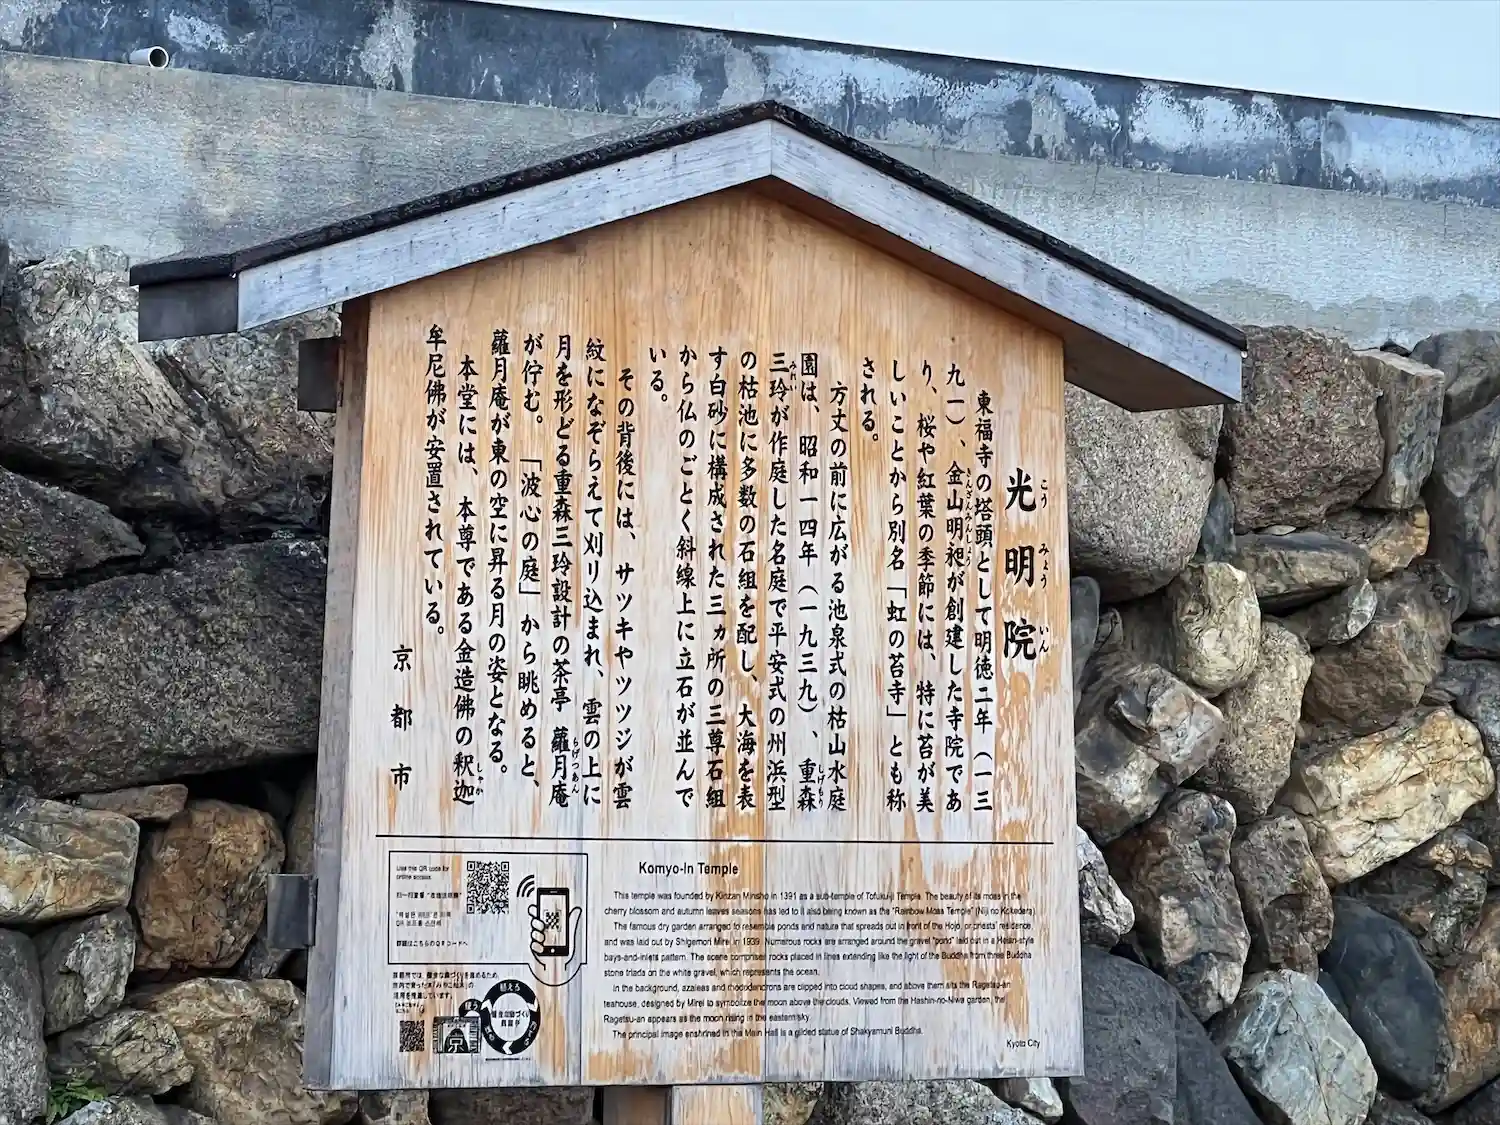 光明院
こう みょう いん
東福寺の塔頭として明徳二年（一三
九一）、金山明昶が創建した寺院であ
きんざんみんしょう
り、桜や紅葉の季節には、特に苔が美
しいことから別名「虹の苔寺」とも称
される。
方丈の前に広がる池泉式の枯山水庭
園は、昭和一四年（一九三九）、重森
しげもり
三玲が作庭した名庭で平安式の州浜型
みれい
の枯池に多数の石組を配し、大海を表
す白砂に構成された三ヵ所の三尊石組
から仏のごとく斜線上に立石が並んで
いる。
その背後には、サツキやツツジが雲
紋になぞらえて刈り込まれ、雲の上に
月を形どる重森三玲設計の茶亭 蘿月庵
らげつあん
が佇む。「波心の庭」から眺めると、
蘿月庵が東の空に昇る月の姿となる。
本堂には、本尊である金造佛の釈迦
しゃか
牟尼佛が安置されている。
京都市
Use this QR code for
online access.
詳細はこちらのQRコードへ
Komyo-in Temple
This temple was founded by Kinzan Minsho in 1391 as a sub-temple of Tofuku-ji Temple. The beauty of its moss in the
cherry blossom and autumn leaves seasons has led to it also being known as the "Rainbow Moss Temple" (Niji no Kokedera).
The famous dry garden arranged to resemble ponds and nature that spreads out in front of the Hojo, or priests' residence,
and was laid out by Shigemori Mirei in 1939. Numerous rocks are arranged around the gravel "pond" laid out in a Heian-style
bays-and-inlets pattern. The scene comprises rocks placed in lines extending like the light of the Buddha from three Buddha
stone triads on the white gravel, which represents the ocean.
In the background, azaleas and rhododendrons are clipped into cloud shapes, and above them sits the Ragetsu-an
teahouse, designed by Mirei to symbolize the moon above the clouds. Viewed from the Hashin-no-Niwa garden, the
Ragetsu-an appears as the moon rising in the eastern sky.
The principal image enshrined in the Main Hall is a gilded statue of Shakyamuni Buddha.
Kyoto City